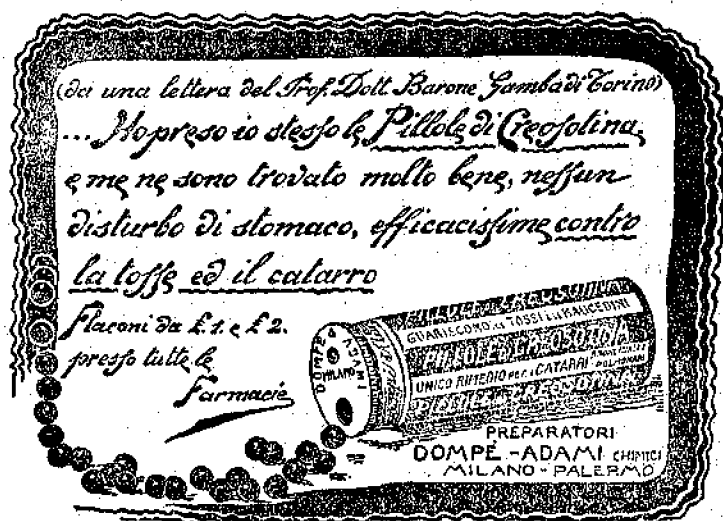 (da una lettera del Prof. Dott. Barone Gamba di Torino)
... Ho preso io stesso le Pillole di Creosotina,
e me ne sono trovato molto bene, nessun
disturbo di stomaco, efficacissime contro
la tosse ed il catarro
Flaconi da £.1. e £ 2.
presso tutte le
Farmacie
DOMPÉ ADAMI
MILANO
PILLOLE DI CREOSOTINA
GUARISCONO LE TOSSI E LE RAUCEDINI
PILLOLE DI CREOSOTINA
UNICO RIMEDIO PER I CATARRI
PILLOLE DI CREOSOTINA
PREPARATORI
DOMPÉ - ADAMI CHIMICI
MILANO - PALERMO